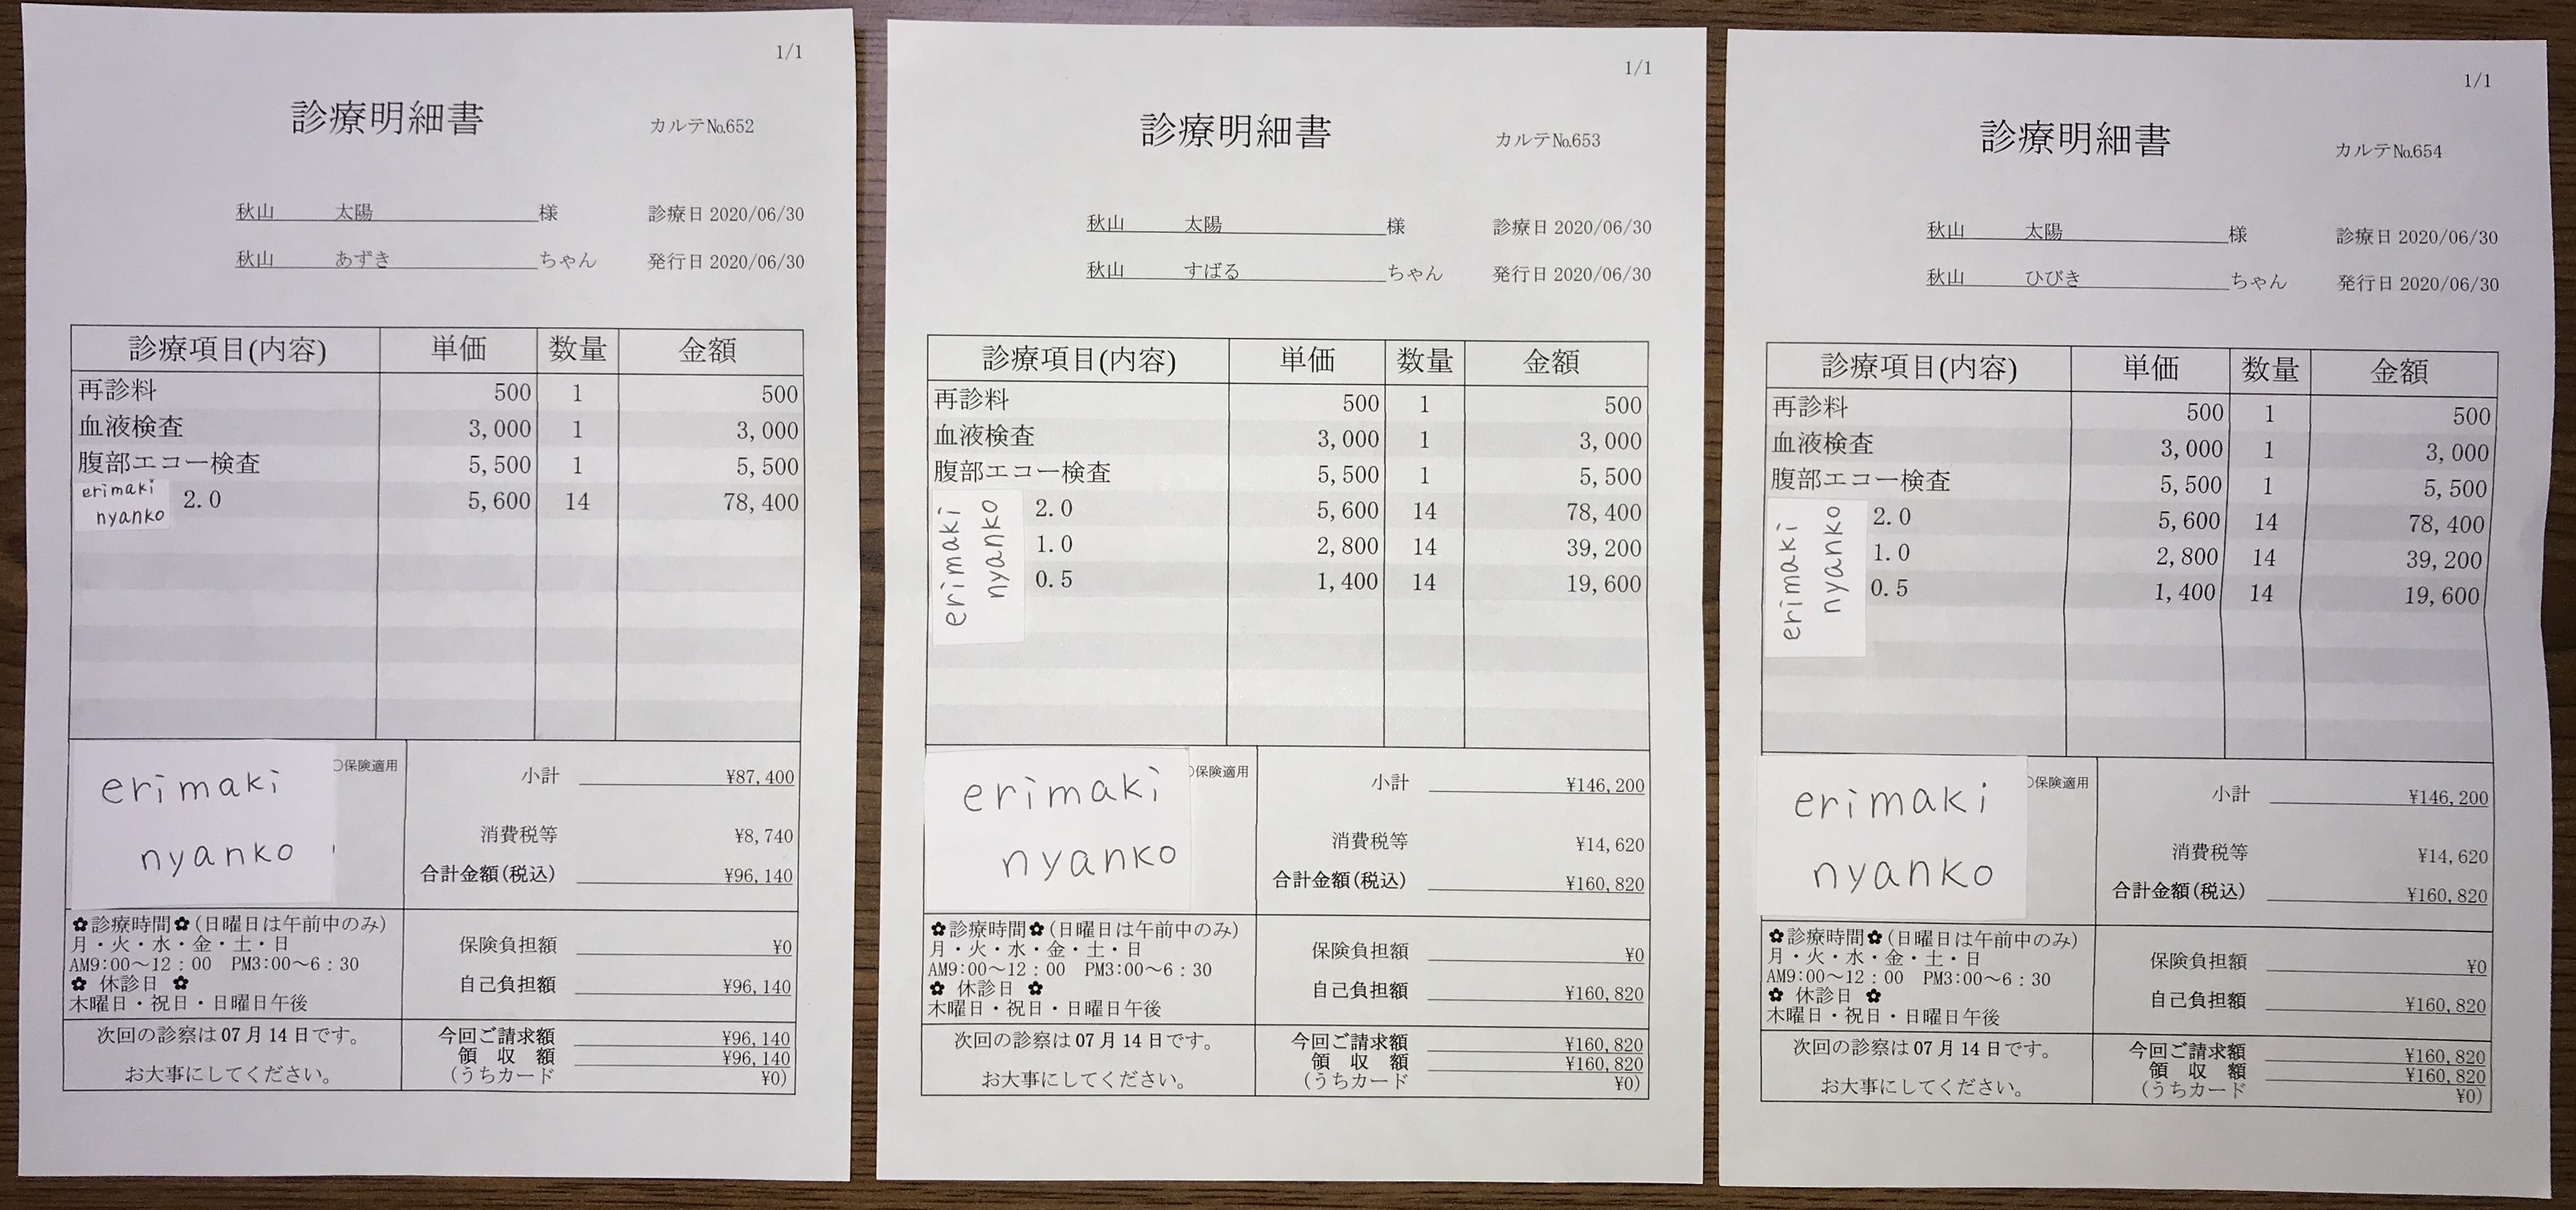 1/1
診療明細書
カルテ№652
秋山 太陽 様 診療日 2020/06/30
秋山 あずき ちゃん 発行日 2020/06/30
診療項目(内容) 単価 数量 金額
再診料 500 1 500
血液検査 3,000 1 3,000
腹部エコー検査 5,500 1 5,500
erimaki
nyanko
2.0 5,600 14 78,400
erimaki
nyanko
○保険適用
小計 ¥87,400
消費税等 ¥8,740
合計金額(税込) ¥96,140
✿診療時間✿(日曜日は午前中のみ)
月・火・水・金・土・日
AM9:00～12:00 PM3:00～6:30
✿ 休診日 ✿
木曜日・祝日・日曜日午後
保険負担額 ¥0
自己負担額 ¥96,140
次回の診察は07月14日です。
お大事にしてください。
今回ご請求額 ¥96,140
領 収 額 ¥96,140
(うちカード ¥0)
1/1
診療明細書
カルテ№653
秋山 太陽 様 診療日 2020/06/30
秋山 すばる ちゃん 発行日 2020/06/30
診療項目(内容) 単価 数量 金額
再診料 500 1 500
血液検査 3,000 1 3,000
腹部エコー検査 5,500 1 5,500
erimaki
nyanko
2.0 5,600 14 78,400
1.0 2,800 14 39,200
0.5 1,400 14 19,600
erimaki
nyanko
○保険適用
小計 ¥146,200
消費税等 ¥14,620
合計金額(税込) ¥160,820
✿診療時間✿(日曜日は午前中のみ)
月・火・水・金・土・日
AM9:00～12:00 PM3:00～6:30
✿ 休診日 ✿
木曜日・祝日・日曜日午後
保険負担額 ¥0
自己負担額 ¥160,820
次回の診察は07月14日です。
お大事にしてください。
今回ご請求額 ¥160,820
領 収 額 ¥160,820
(うちカード ¥0)
1/1
診療明細書
カルテ№654
秋山 太陽 様 診療日 2020/06/30
秋山 ひびき ちゃん 発行日 2020/06/30
診療項目(内容) 単価 数量 金額
再診料 500 1 500
血液検査 3,000 1 3,000
腹部エコー検査 5,500 1 5,500
erimaki
nyanko
2.0 5,600 14 78,400
1.0 2,800 14 39,200
0.5 1,400 14 19,600
erimaki
nyanko
○保険適用
小計 ¥146,200
消費税等 ¥14,620
合計金額(税込) ¥160,820
✿診療時間✿(日曜日は午前中のみ)
月・火・水・金・土・日
AM9:00～12:00 PM3:00～6:30
✿ 休診日 ✿
木曜日・祝日・日曜日午後
保険負担額 ¥0
自己負担額 ¥160,820
次回の診察は07月14日です。
お大事にしてください。
今回ご請求額 ¥160,820
領 収 額 ¥160,820
(うちカード ¥0)